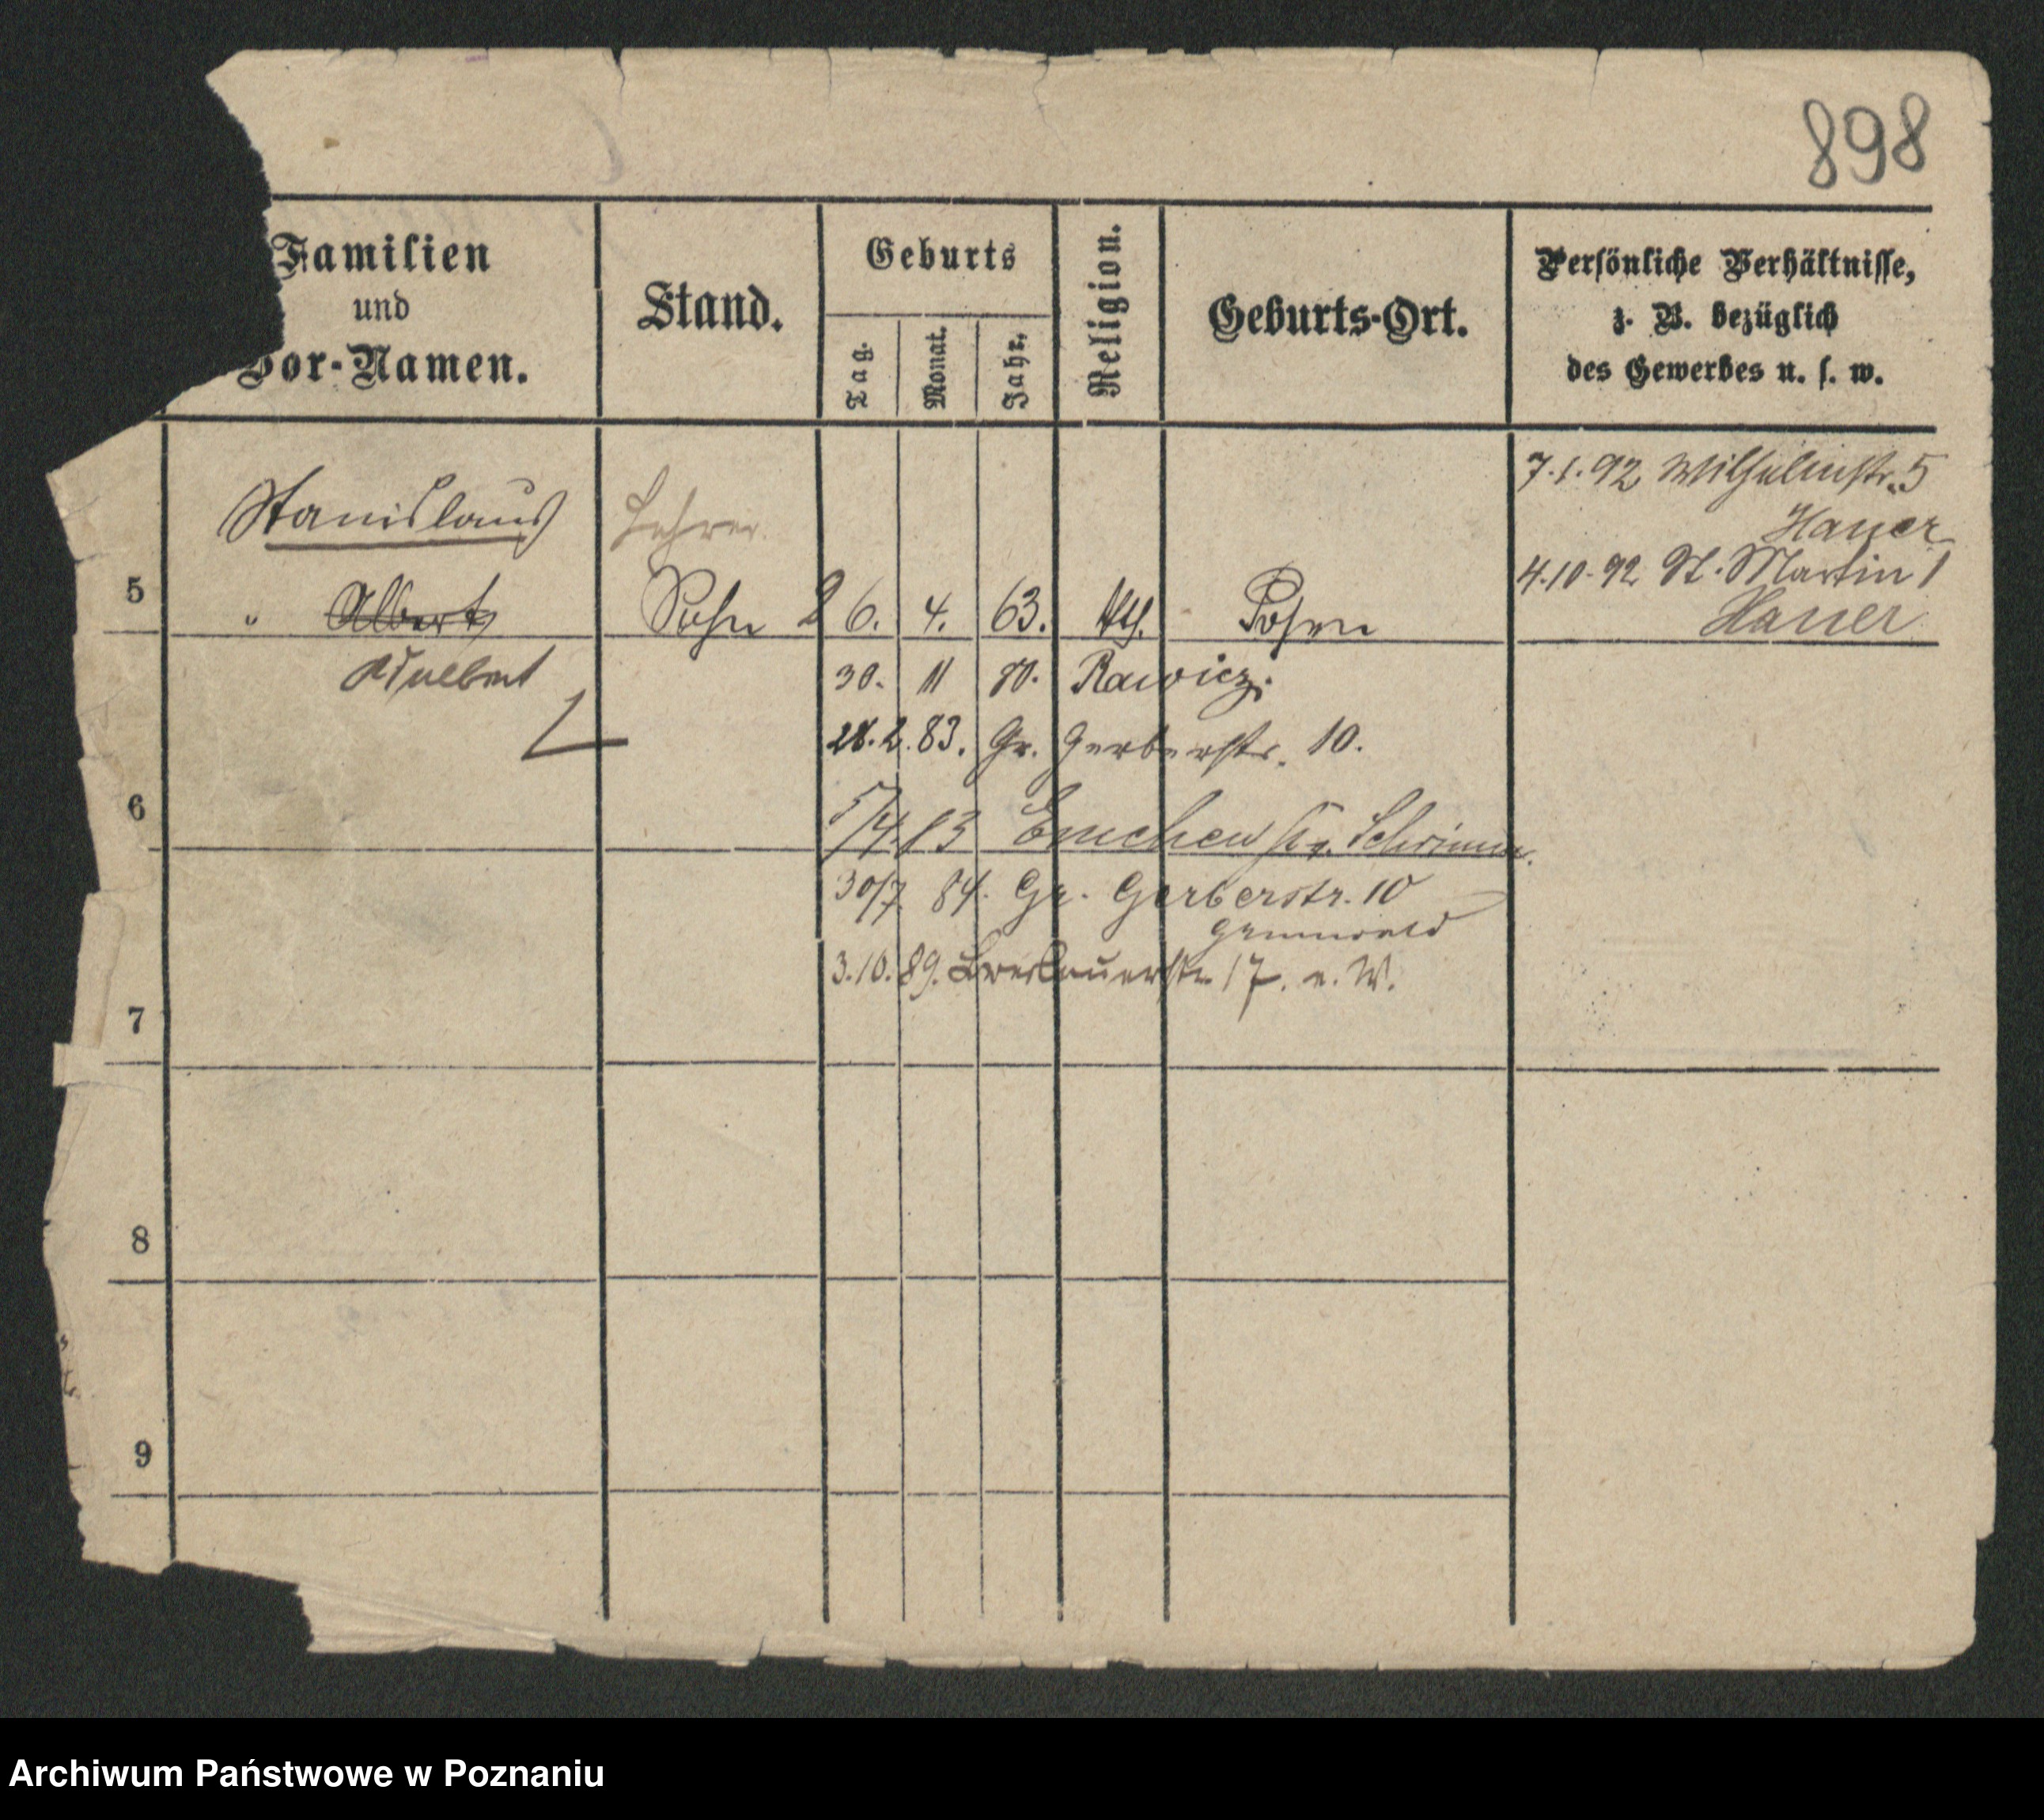 898
Familien
und
Vor-Namen.
Stand.
Geburts
Tag.
Monat.
Jahr.
Religion.
Geburts-Ort.
Persönliche Verhältnisse,
z. B. bezüglich
des Gewerbes u. s. w.
7.1.92 Wilhelmstr. 5
Hauer
4.10.92 St. Martin 1
Hauer
Stanislaus
Lehrer
5 " Albert Sohn 26. 4. 63. kth. Posen
Adalbert
30. 11 80. Rawicz.
28.2.83. Gr. Gerberstr. 10.
6
5/4 83 Emchen Kr. Schrimm.
30/7 84. Gr. Gerberstr. 10
Grunwald
3.10.89. Breslauerstr 17. e. W.
7
8
9
Archiwum Państwowe w Poznaniu